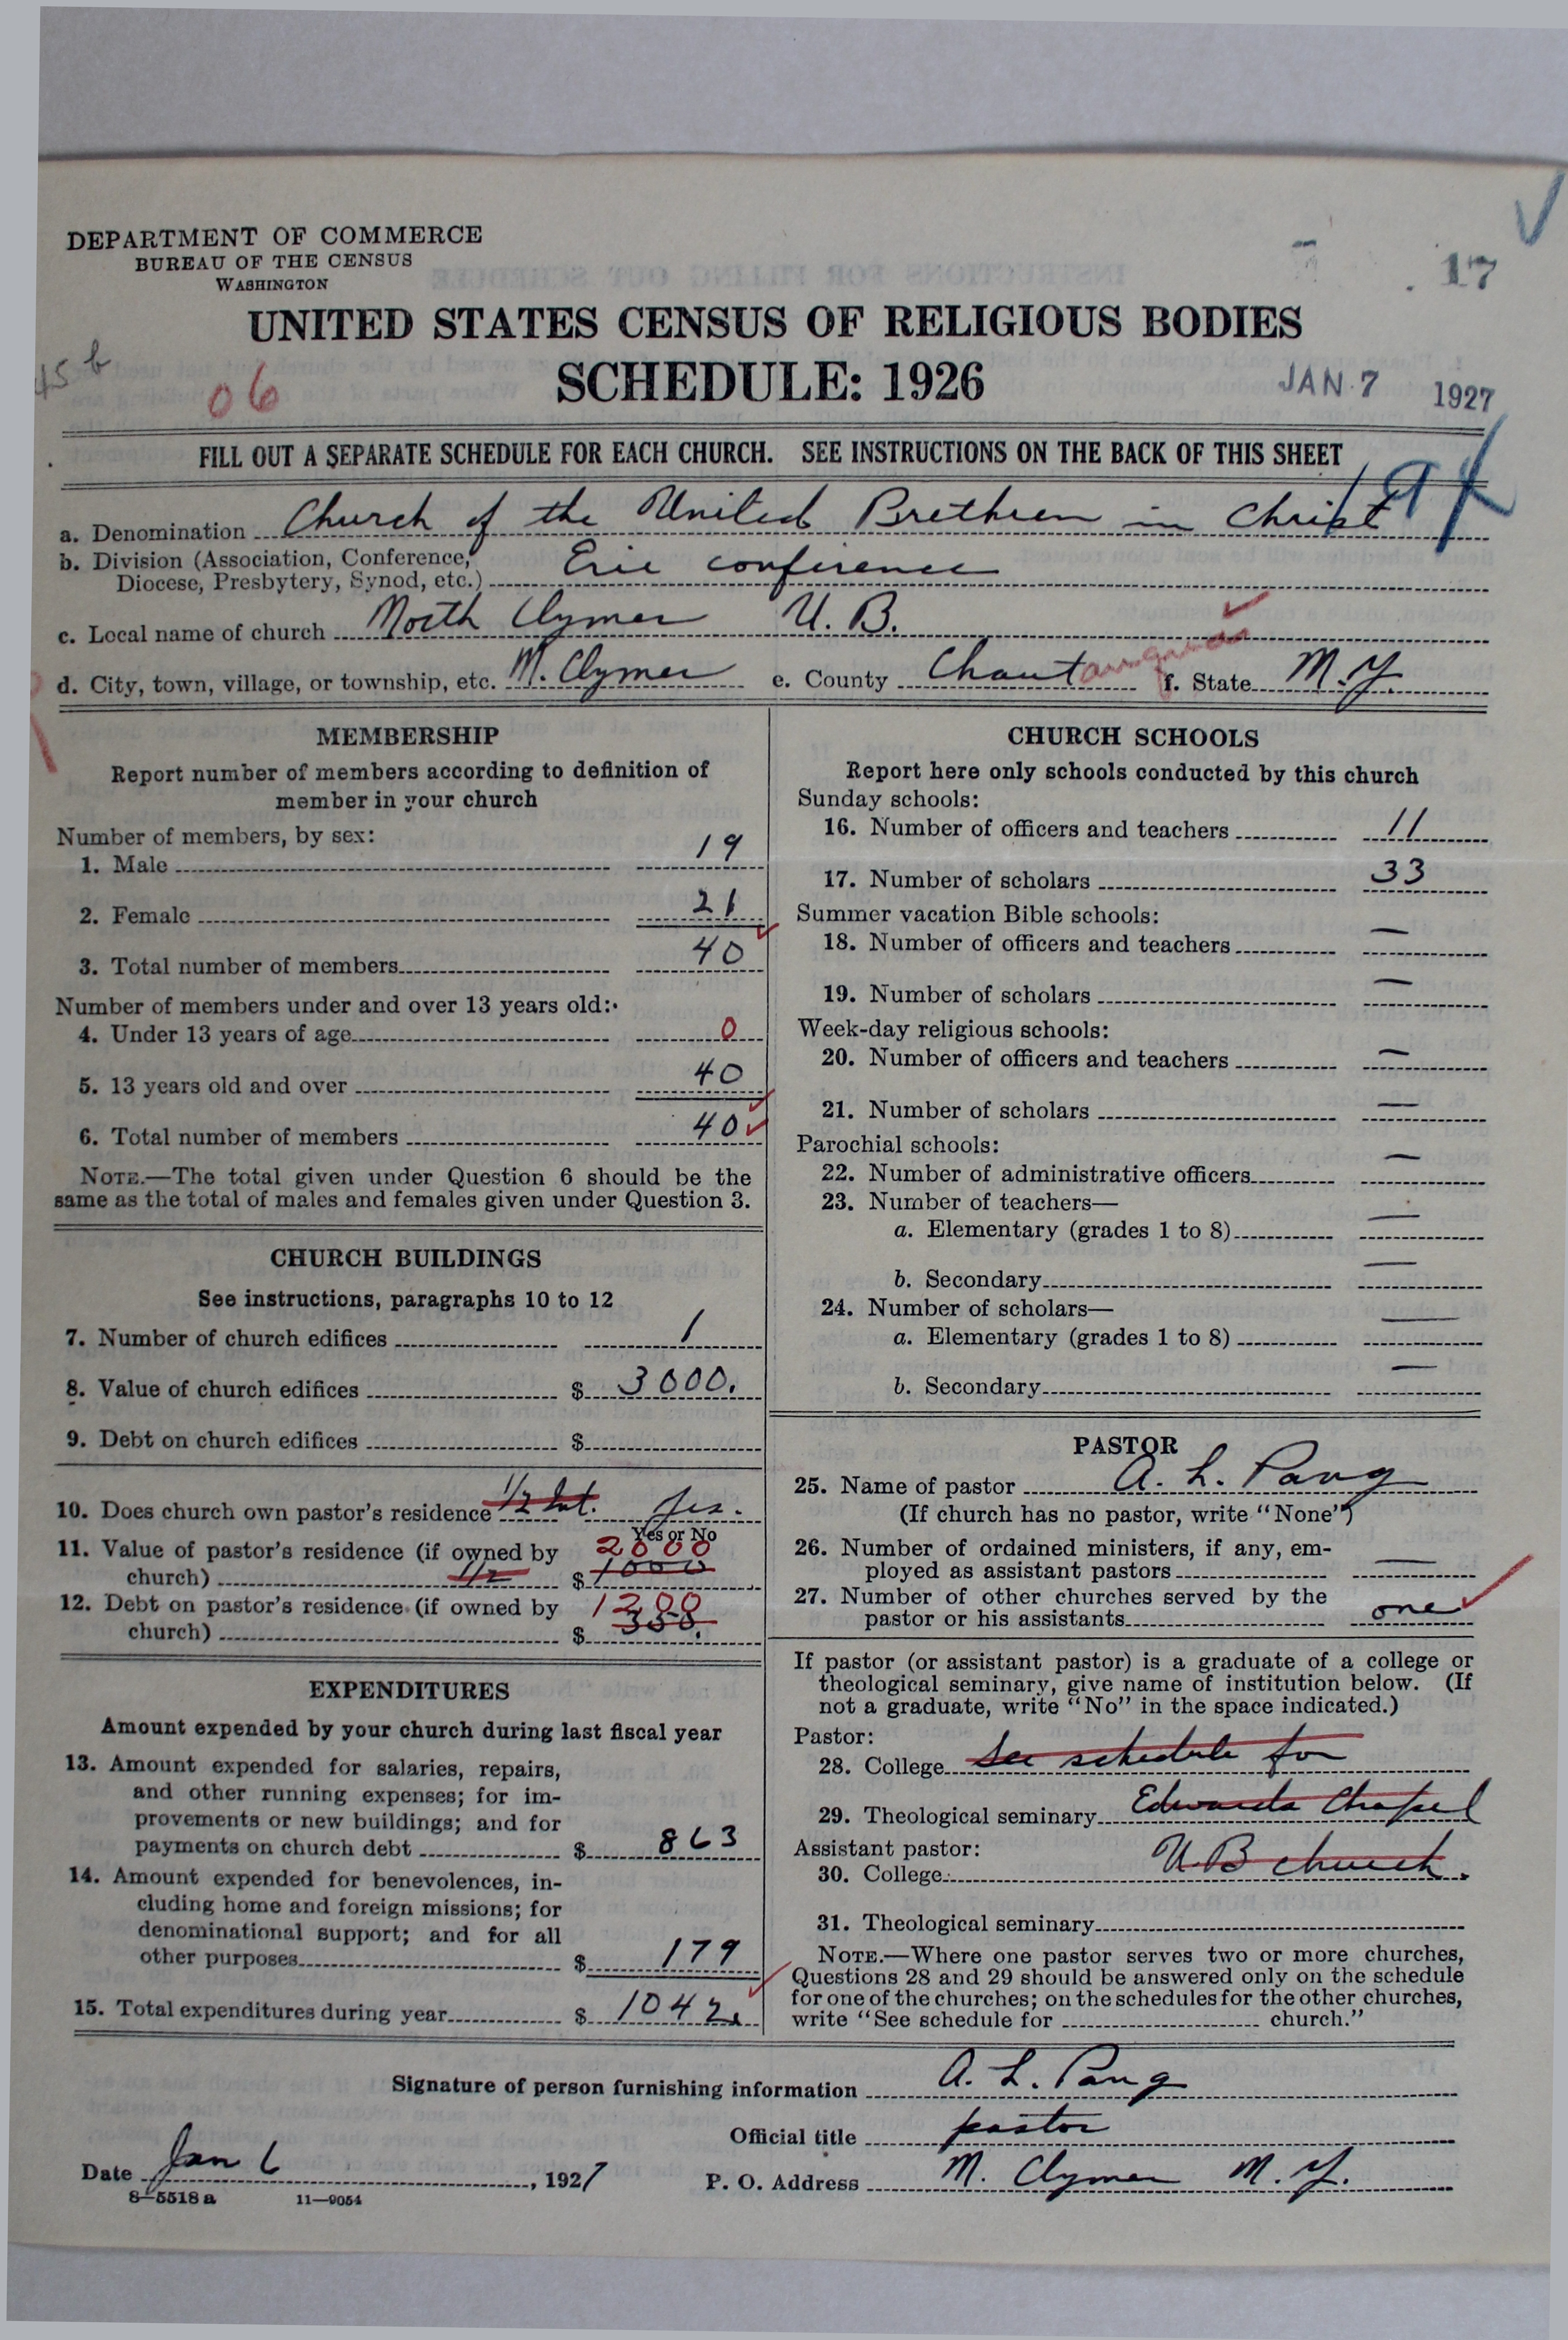 DEPARTMENT OF COMMERCE
BUREAU OF THE CENSUS
WASHINGTON
17
UNITED STATES CENSUS OF RELIGIOUS BODIES
45 b
06
SCHEDULE: 1926
JAN 7 1927
FILL OUT A SEPARATE SCHEDULE FOR EACH CHURCH. SEE INSTRUCTIONS ON THE BACK OF THIS SHEET
a. Denomination Church of the United Brethren in Christ
b. Division (Association, Conference,
Diocese, Presbytery, Synod, etc.) Erie conference
c. Local name of church North Clymer U. B.
d. City, town, village, or township, etc. N. Clymer e. County Chautauqua f. State N. Y.
MEMBERSHIP
Report number of members according to definition of
member in your church
Number of members, by sex:
1. Male 19
2. Female 21
3. Total number of members 40
Number of members under and over 13 years old:
4. Under 13 years of age 0
5. 13 years old and over 40
6. Total number of members 40
NOTE.—The total given under Question 6 should be the
same as the total of males and females given under Question 3.
CHURCH BUILDINGS
See instructions, paragraphs 10 to 12
7. Number of church edifices 1
8. Value of church edifices $ 3000.
9. Debt on church edifices $
10. Does church own pastor's residence 1/2 Int. yes.
Yes or No
11. Value of pastor's residence (if owned by 2000
church) 1/2 $ 1000
12. Debt on pastor's residence (if owned by 1200
church) $ 350.
EXPENDITURES
Amount expended by your church during last fiscal year
13. Amount expended for salaries, repairs,
and other running expenses; for im-
provements or new buildings; and for
payments on church debt $ 863
14. Amount expended for benevolences, in-
cluding home and foreign missions; for
denominational support; and for all
other purposes $ 179
15. Total expenditures during year $ 1042.
CHURCH SCHOOLS
Report here only schools conducted by this church
Sunday schools:
16. Number of officers and teachers 11
17. Number of scholars 33
Summer vacation Bible schools:
18. Number of officers and teachers —
19. Number of scholars —
Week-day religious schools:
20. Number of officers and teachers —
21. Number of scholars —
Parochial schools:
22. Number of administrative officers —
23. Number of teachers—
a. Elementary (grades 1 to 8) —
b. Secondary —
24. Number of scholars—
a. Elementary (grades 1 to 8) —
b. Secondary —
PASTOR
25. Name of pastor A. L. Pang
(If church has no pastor, write "None")
26. Number of ordained ministers, if any, em-
ployed as assistant pastors —
27. Number of other churches served by the
pastor or his assistants one
If pastor (or assistant pastor) is a graduate of a college or
theological seminary, give name of institution below. (If
not a graduate, write "No" in the space indicated.)
Pastor:
28. College See schedule for
29. Theological seminary Edwards Chapel
Assistant pastor:
30. College U. B church.
31. Theological seminary
NOTE.—Where one pastor serves two or more churches,
Questions 28 and 29 should be answered only on the schedule
for one of the churches; on the schedules for the other churches,
write "See schedule for church."
Signature of person furnishing information A. L. Pang
Official title pastor
Date Jan 6, 1927 P. O. Address N. Clymer N. Y.
8—5518 a 11—9054